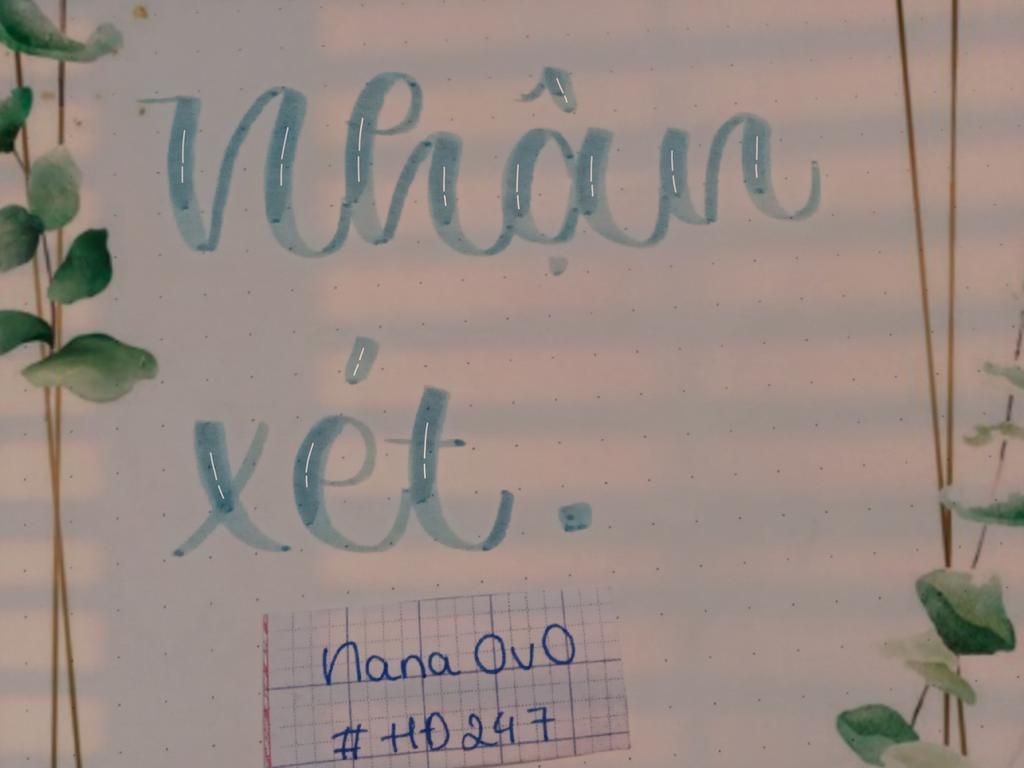 Nhận
xét.
Nana OvO
#HĐ247